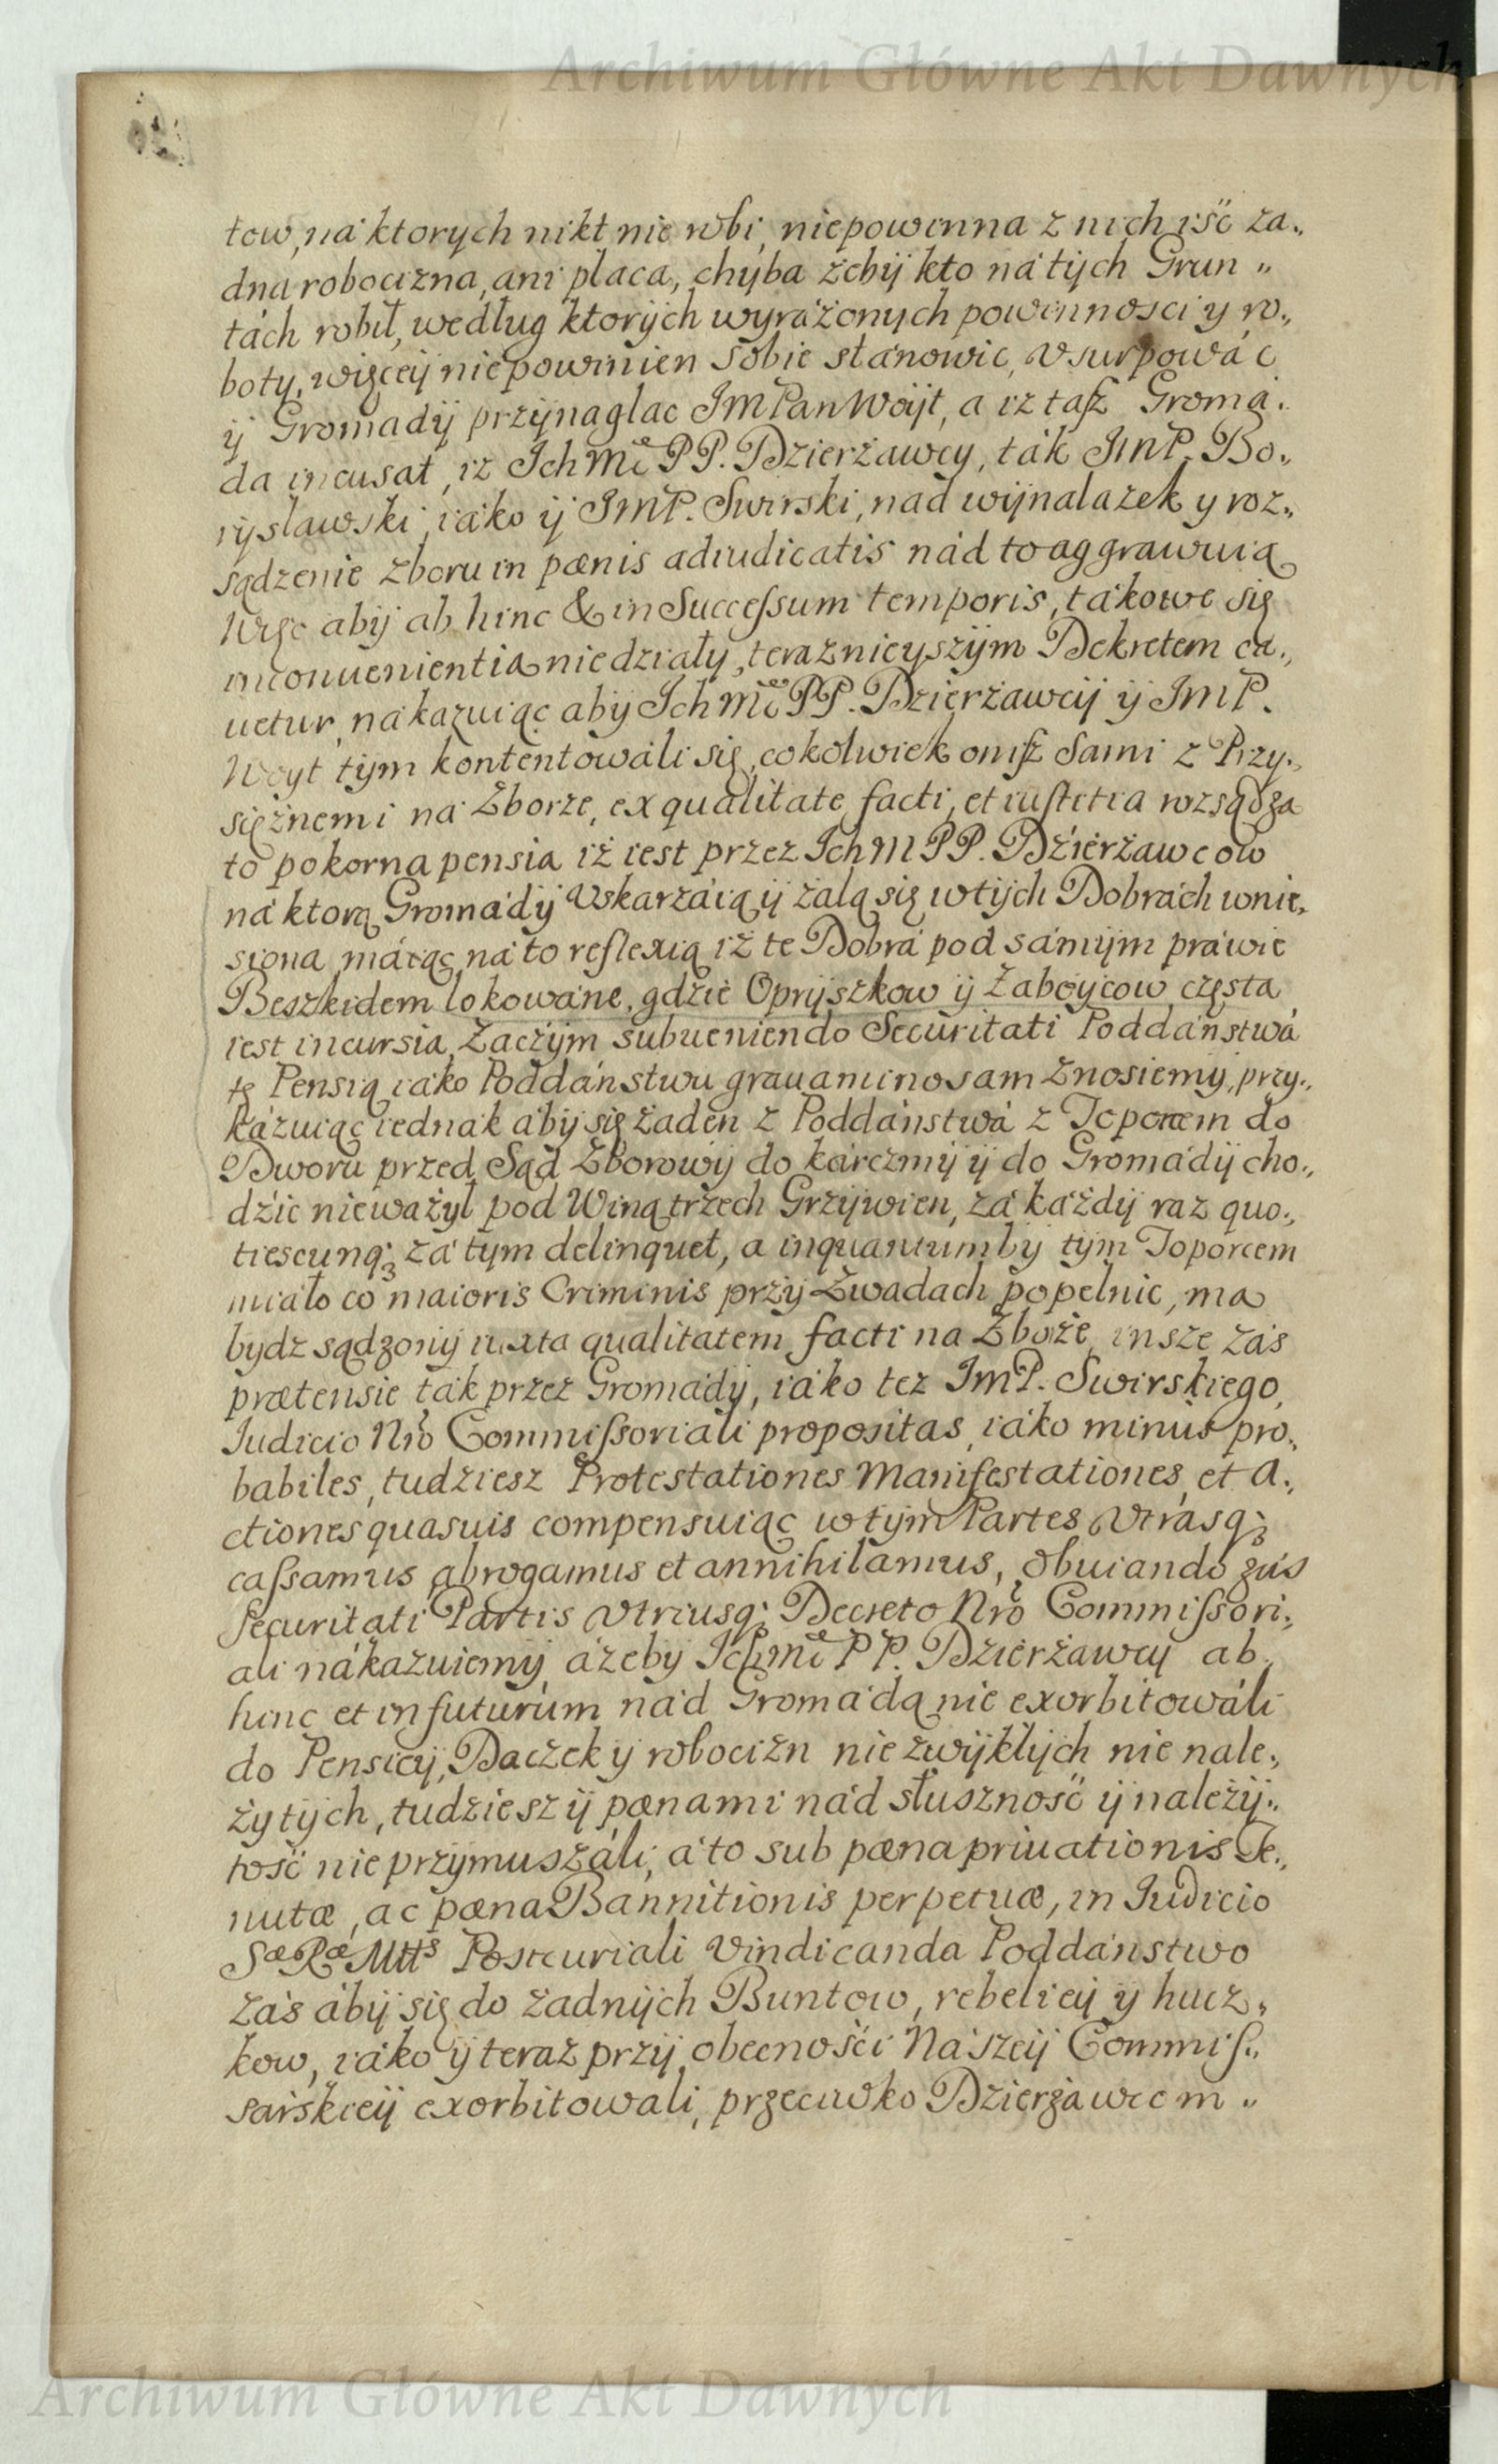 Archiwum Główne Akt Dawnych
tow, ná ktorych nikt nie robi, niepowinna z nich iść za„
dna robocizna, ani płaca, chyba żeby kto ná tych Grun „
tách robił, według ktorych wyrażonych powinnosci y ro„
boty, więcey niepowinien sobie stánowic, vsurpowáć
ÿ Gromadÿ przÿnaglac JmPan Wóÿt, a iż tasz Gromá„
da incusat, iż Ich Mc PP. Dzierżawcy, ták JmP. Bo„
rysławski, iáko ÿ JMP. Swirski, nad wÿnalazek y roz„
sądzenie Zboru in pœnis adiudicatis nád to aggrawuią
Więc abÿ ab hinc & in Successum temporis, tákowe się
inconuenientia niedziały, teraznieyszÿm Dekretem ca„
uetur, nákazuiąc abÿ Ich Mc PP. Dzierżawcÿ ÿ JmP.
Woyt tÿm kontentowáli się, cokolwiek onisz Sami z Przy„
siężnemi ná Zborze, ex qualitate facti, et iustitia rozsądzą
to pokorna pensia iż iest przez Ich M PP. Dzierżawcow
ná ktorą Gromádÿ Vskarżáią ÿ żalą się w tÿch Dobrách wnie„
siona, máiąc ná to reflexią iż te Dobrá pod sámÿm práwie
Beszkidem lokowáne, gdzie Oprÿszkow ÿ Zaboycow częsta
iest incursia, Zaczÿm subueniendo Securitati Poddáństwá
tę Pensią iáko Poddáństwu grauaminosam Znosiemÿ, przy„
kázuiąc iednak ábÿ się żaden z Poddáństwá z Toporem do
Dworu przed Sąd Zborowÿ do kárczmÿ ÿ do Gromádÿ cho„
dźić nieważył pod Winą trzech Grzÿwien, zá káżdÿ raz quo„
tiescunq; zá tym delinquet, a inquantumbÿ tÿm Toporcem
miáło co maioris Criminis przÿ Zwadach popełnic, ma
bydz sądzonÿ iuxta qualitatem facti na Zborże, insze zás
prætensie ták przez Gromádÿ, iáko tez JmP. Swirskiego,
Iudicio Nrō Commissoriali propositas, iáko minús pro„
babiles, tudziesz Protestationes Manifestationes, et A„
ctiones quasuis compensuiąc w tÿm Partes Vtrásq;
cassamus abrogamus et annihilamus, obuiando záś
Securitati Partis Vtriusq; Decreto Nrō Commissori„
ali nákazuiemÿ áżeby Ich Mc PP. Dzierżawcy ab
hinc et in futurúm nád Gromádą nie exorbitowáli
do Pensiey, Daczek ÿ robocizn niezwÿkłÿch nie nale„
żytÿch, tudziesz ÿ pœnami nád słuszność ÿ należÿ„
tość nie przÿmuszáli, á to sub pœna priuationis Te„
nutæ, ac pœna Bannitionis perpetuæ, in Iudicio
Sæ Ræ Mtts Postcuriali Vindicanda Poddánstwo
zás ábÿ się do żadnÿch Buntow, rebeliey y hucz„
kow, iáko ÿ teraz przÿ obecnośći Nászeÿ Commis„
sárskieÿ exorbitowali, przeciwko Dzierżáwcom „
Archiwum Główne Akt Dawnych